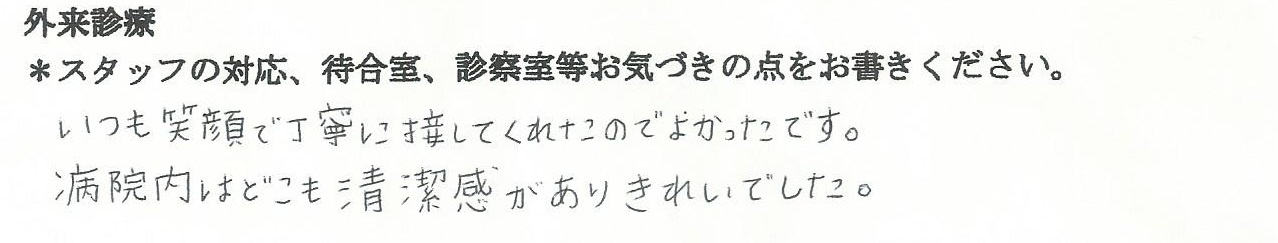 外来診療
＊スタッフの対応、待合室、診察室等お気づきの点をお書きください。
いつも笑顔で丁寧に接してくれたのでよかったです。
病院内はどこも清潔感がありきれいでした。